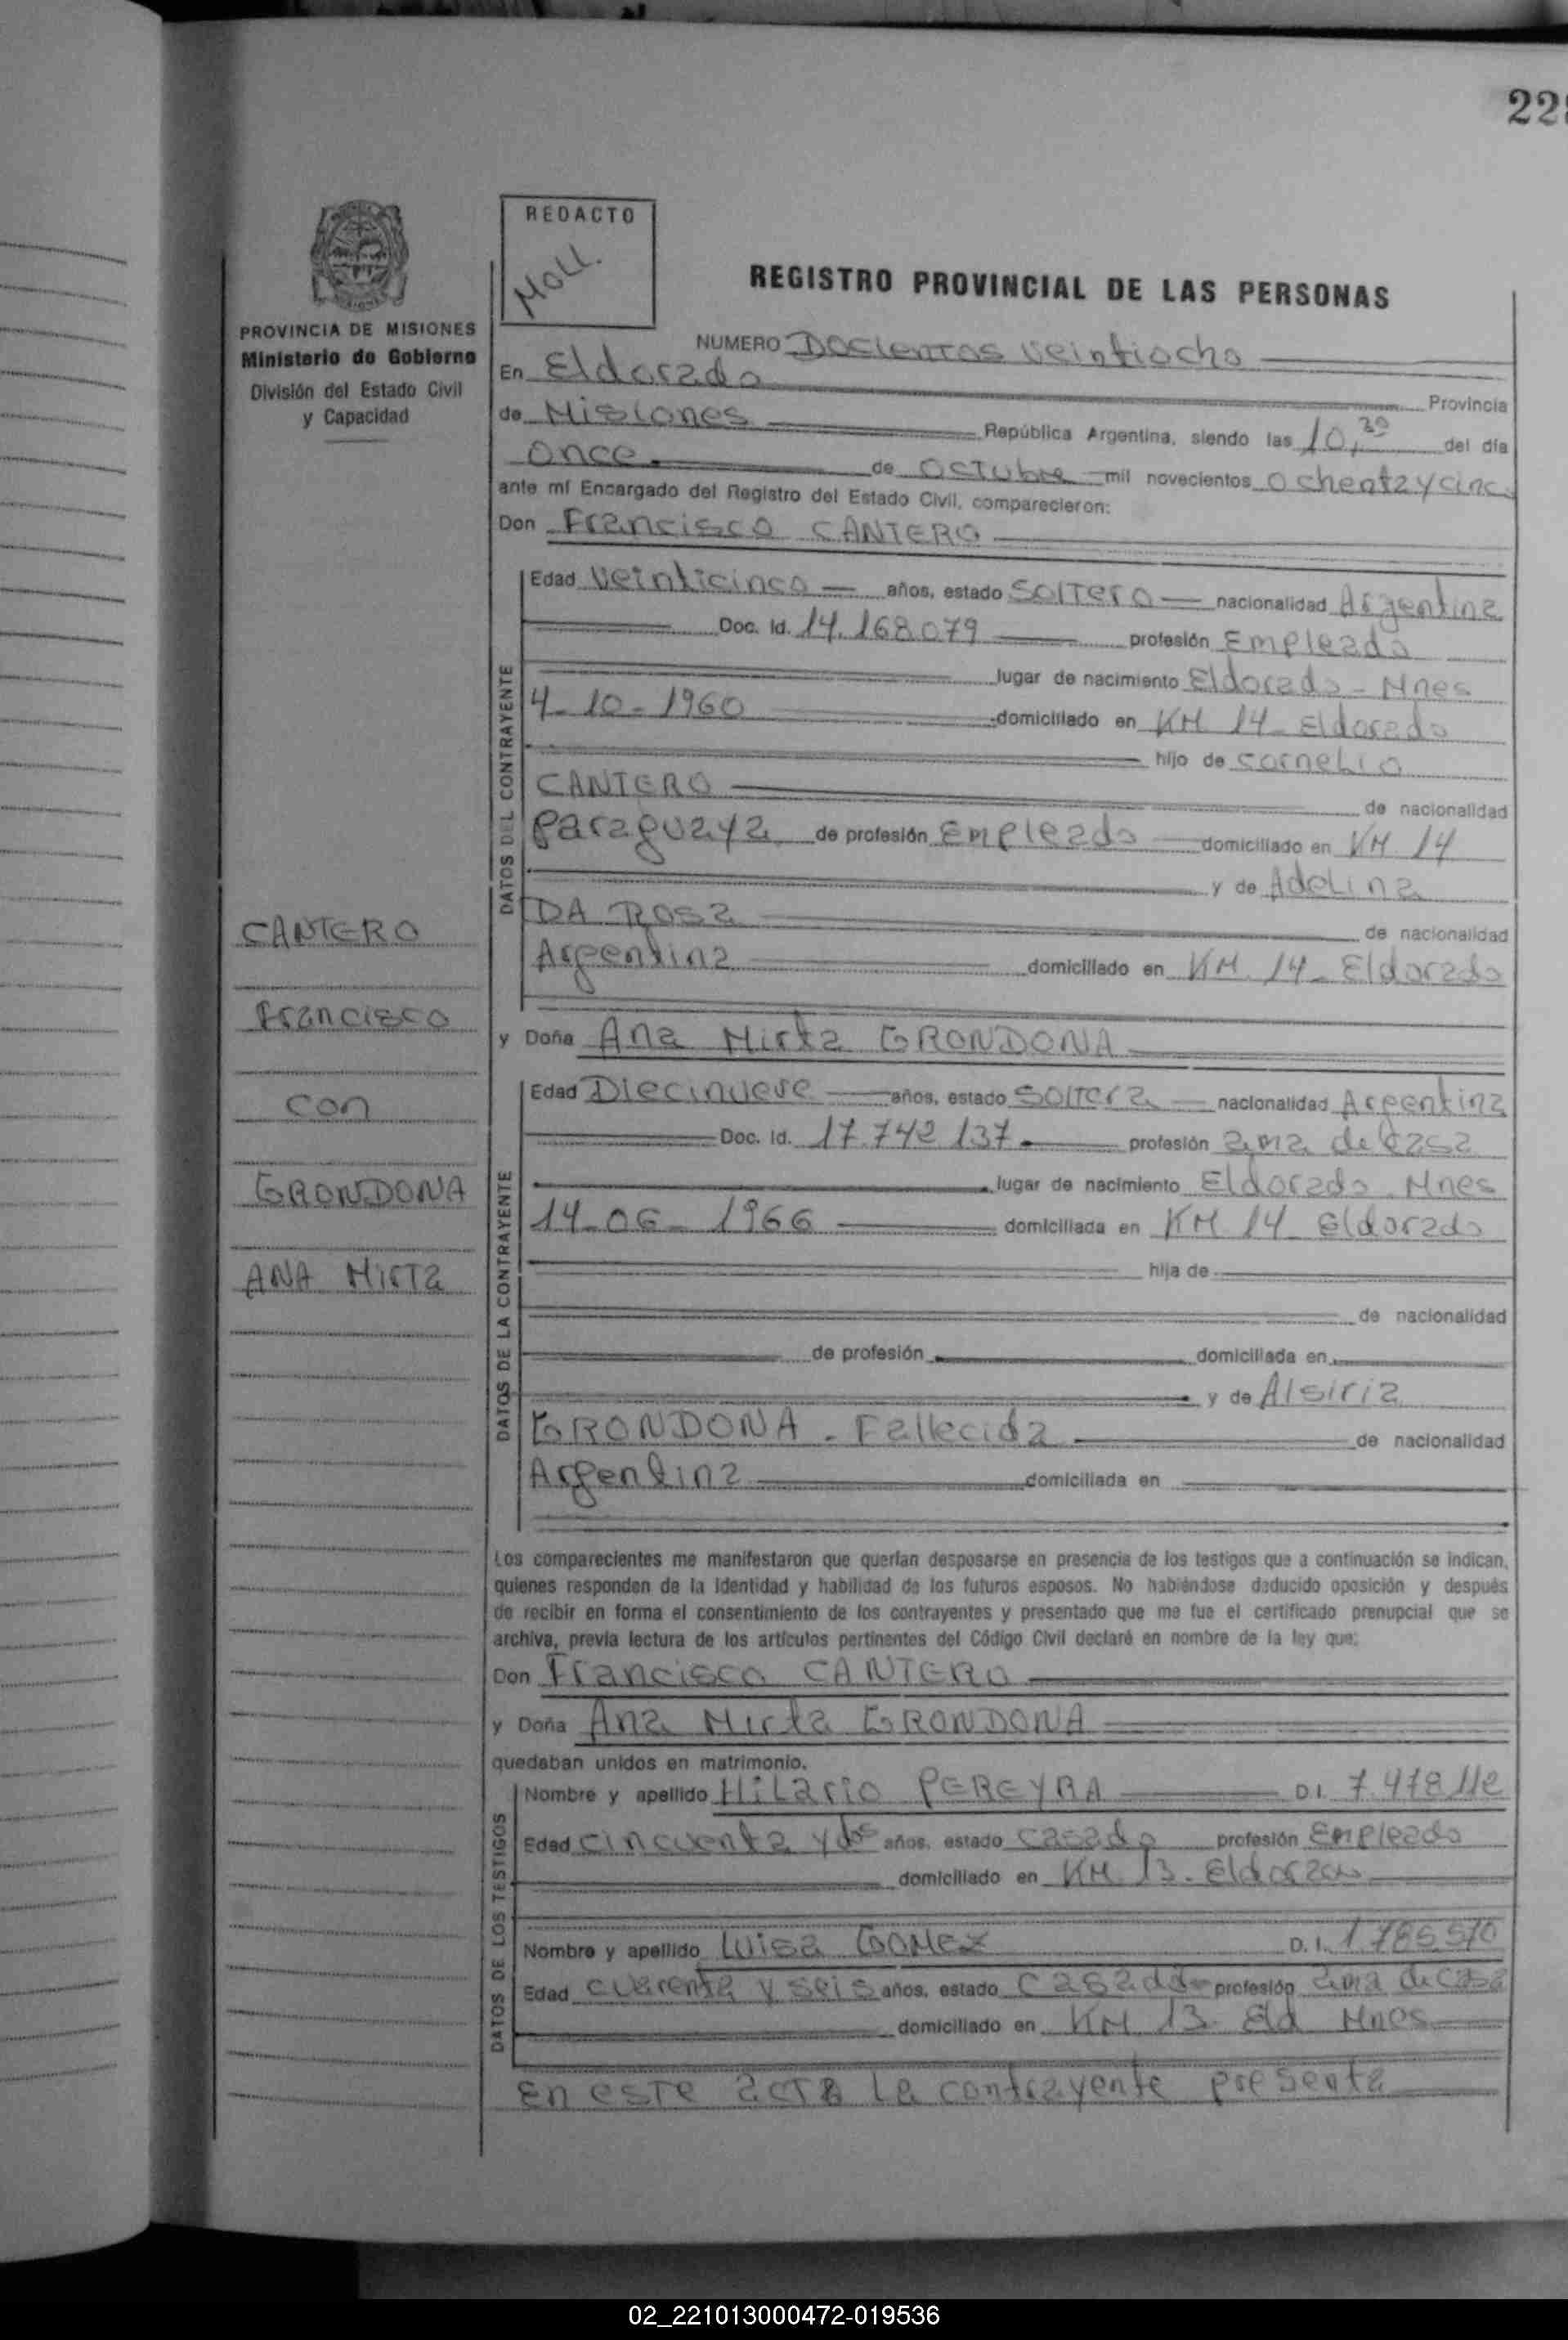 22
REDACTO
Moll.
PROVINCIA DE MISIONES
Ministerio de Gobierno
División del Estado Civil
y Capacidad
REGISTRO PROVINCIAL DE LAS PERSONAS
NUMERO Docientos veintiocho
En Eldorado
Provincia
de Misiones República Argentina, siendo las 10,30 del día
once de octubre mil novecientos ochenta y cinc
ante mí Encargado del Registro del Estado Civil, comparecieron:
Don Francisco CANTERO
DATOS DEL CONTRAYENTE
Edad Veinticinco años, estado soltero nacionalidad Argentina
Doc. Id. 14.168.079 profesión Empleado
lugar de nacimiento Eldorado - Mnes
4-10-1960 domiciliado en KM 14 - Eldorado
hijo de Cornelio
CANTERO de nacionalidad
Paraguaya de profesión Empleado domiciliado en KM. 14
y de Adelina
DA Rosa de nacionalidad
Argentina domiciliado en KM. 14 - Eldorado
CANTERO
Francisco
con
GRONDONA
ANA Mirta
y Doña Ana Mirta GRONDONA
DATOS DE LA CONTRAYENTE
Edad Diecinueve años, estado soltera nacionalidad Argentina
Doc. Id. 17.742 137 profesión ama de casa
lugar de nacimiento Eldorado. Mnes
14-06-1966 domiciliada en KM 14 Eldorado
hija de
de nacionalidad
de profesión domiciliada en
y de Alsiria
GRONDONA - Fallecida de nacionalidad
Argentina domiciliada en
Los comparecientes me manifestaron que querían desposarse en presencia de los testigos que a continuación se indican,
quienes responden de la identidad y habilidad de los futuros esposos. No habiéndose deducido oposición y después
de recibir en forma el consentimiento de los contrayentes y presentado que me fue el certificado prenupcial que se
archiva, previa lectura de los artículos pertinentes del Código Civil declaré en nombre de la ley que:
Don Francisco CANTERO
y Doña Ana Mirta GRONDONA
quedaban unidos en matrimonio.
DATOS DE LOS TESTIGOS
Nombre y apellido Hilario PEREYRA D.I. 7.478 112
Edad cincuenta y dos años, estado casado profesión Empleado
domiciliado en KM 13 - Eldorado
Nombre y apellido Luisa GOMEZ D.I.
Edad cuarenta y seis años, estado casada profesión ama de casa
domiciliado en KM 13 Eld Mnes
En este acta la contrayente presenta
02_221013000472-019536